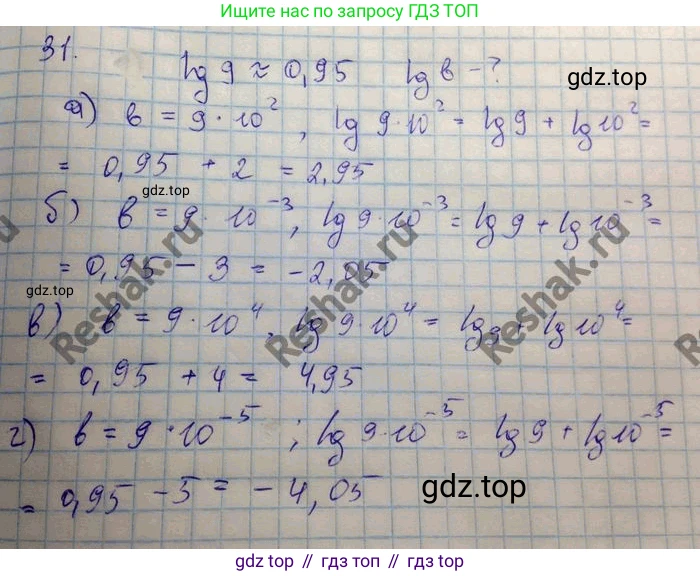 Ищите нас по запросу ГДЗ ТОП
31.
lg 9 ≈ 0,95   lg b - ?
gdz.top
а) b = 9 · 10², lg 9·10² = lg 9 + lg 10² =
= 0,95 + 2 = 2,95
gdz.top
б) b = 9 · 10⁻³, lg 9·10⁻³ = lg 9 + lg 10⁻³ =
= 0,95 - 3 = -2,05
gdz.top
в) b = 9 · 10⁴, lg 9·10⁴ = lg 9 + lg 10⁴ =
= 0,95 + 4 = 4,95
г) b = 9 · 10⁻⁵ ; lg 9·10⁻⁵ = lg 9 + lg 10⁻⁵ =
= 0,95 - 5 = -4,05
gdz.top
Reshak.ru
Reshak.ru
Reshak.ru
gdz top // гдз топ // gdz.top